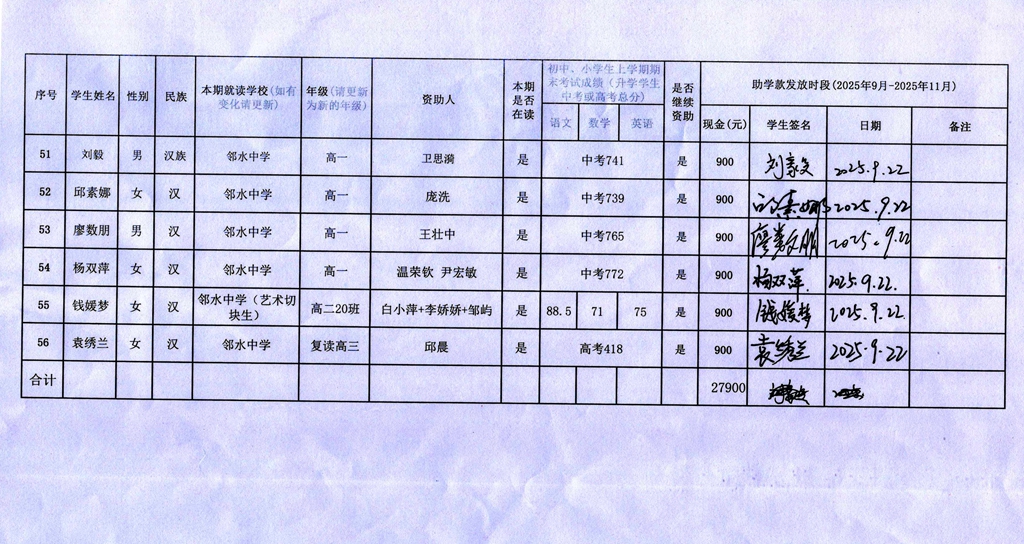 序号 学生姓名 性别 民族 本期就读学校(如有变化请更新) 年级(请更新为新的年级) 资助人 本期是否在读 初中、小学生上学期期末考试成绩(升学学生中考或高考总分) 是否继续资助 助学款发放时段(2025年9月-2025年11月)
语文 数学 英语 现金(元) 学生签名 日期 备注
51 刘毅 男 汉族 邻水中学 高一 卫思漪 是 中考741 是 900 2025.9.22
52 邱素娜 女 汉 邻水中学 高一 庞洗 是 中考739 是 900 邱素娜 2025.9.22
53 廖数朋 男 汉 邻水中学 高一 王壮中 是 中考765 是 900 廖数朋 2025.9.22
54 杨双萍 女 汉 邻水中学 高一 温荣钦 尹宏敏 是 中考772 是 900 杨双萍 2025.9.22.
55 钱媛梦 女 汉 邻水中学(艺术切块生) 高二20班 白小萍+李娇娇+邹屿 是 88.5 71 75 是 900 钱媛梦 2025.9.22.
56 袁绣兰 女 汉 邻水中学 复读高三 邱晨 是 高考418 是 900 袁绣兰 2025.9.22
合计 27900